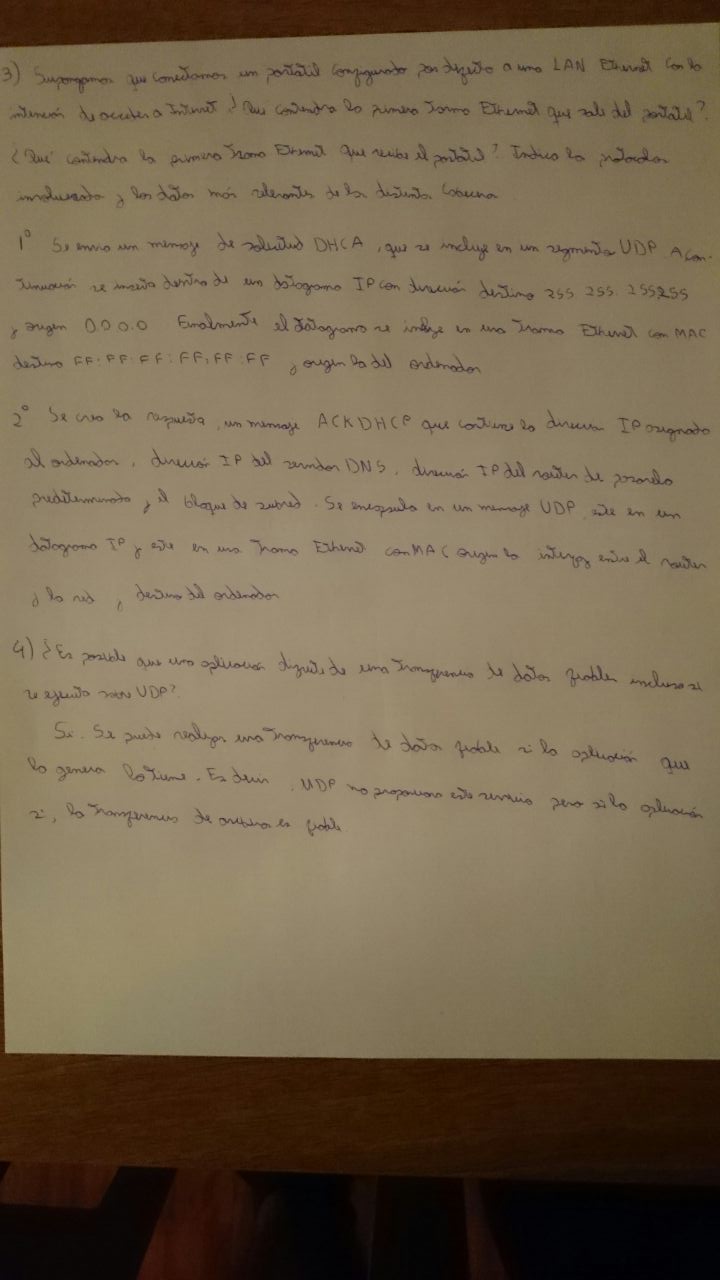 3) Supongamos que conectamos un portátil configurado por defecto a una LAN Ethernet con la
intención de acceder a Internet ¿Que contendra la primera trama Ethernet que sale del portatil?
¿Qué contendra la primera trama Ethernet que recibe el portatil? Indica los protocolos
involucrados y los datos más relevantes de las distintas
1º Se envia un mensaje de solicitud DHCA, que se incluye en un segmento UDP. A con-
tinuación se inserta dentro de un datagrama IP con dirección destino 255.255.255255
y origen 0.0.0.0 Finalmente el datagrama se incluye en una trama Ethernet con MAC
destino FF:FF:FF:FF:FF:FF y origen la del ordenador
2º Se crea la respuesta, un mensaje ACKDHCP que contiene la direccion IP asignada
al ordenador, dirección IP del servidor DNS, dirección IP del router de pasarela
predeterminado y el bloque de subred. Se encapsula en un mensaje UDP, este en un
datagrama IP y este en una trama Ethernet con MAC origen la interfaz entre el router
y la red y destino del ordenador
4) ¿Es posible que una aplicación disfrute de una transferencia de datos fiables incluso si
se ejecuta sobre UDP?
Si. Se puede realizar una transferencia de datos fiable si la aplicación que
la genera la tiene. Es decir, UDP no proporciona este servicio pero si la aplicación
si, la transferencia de archivos es fiable.